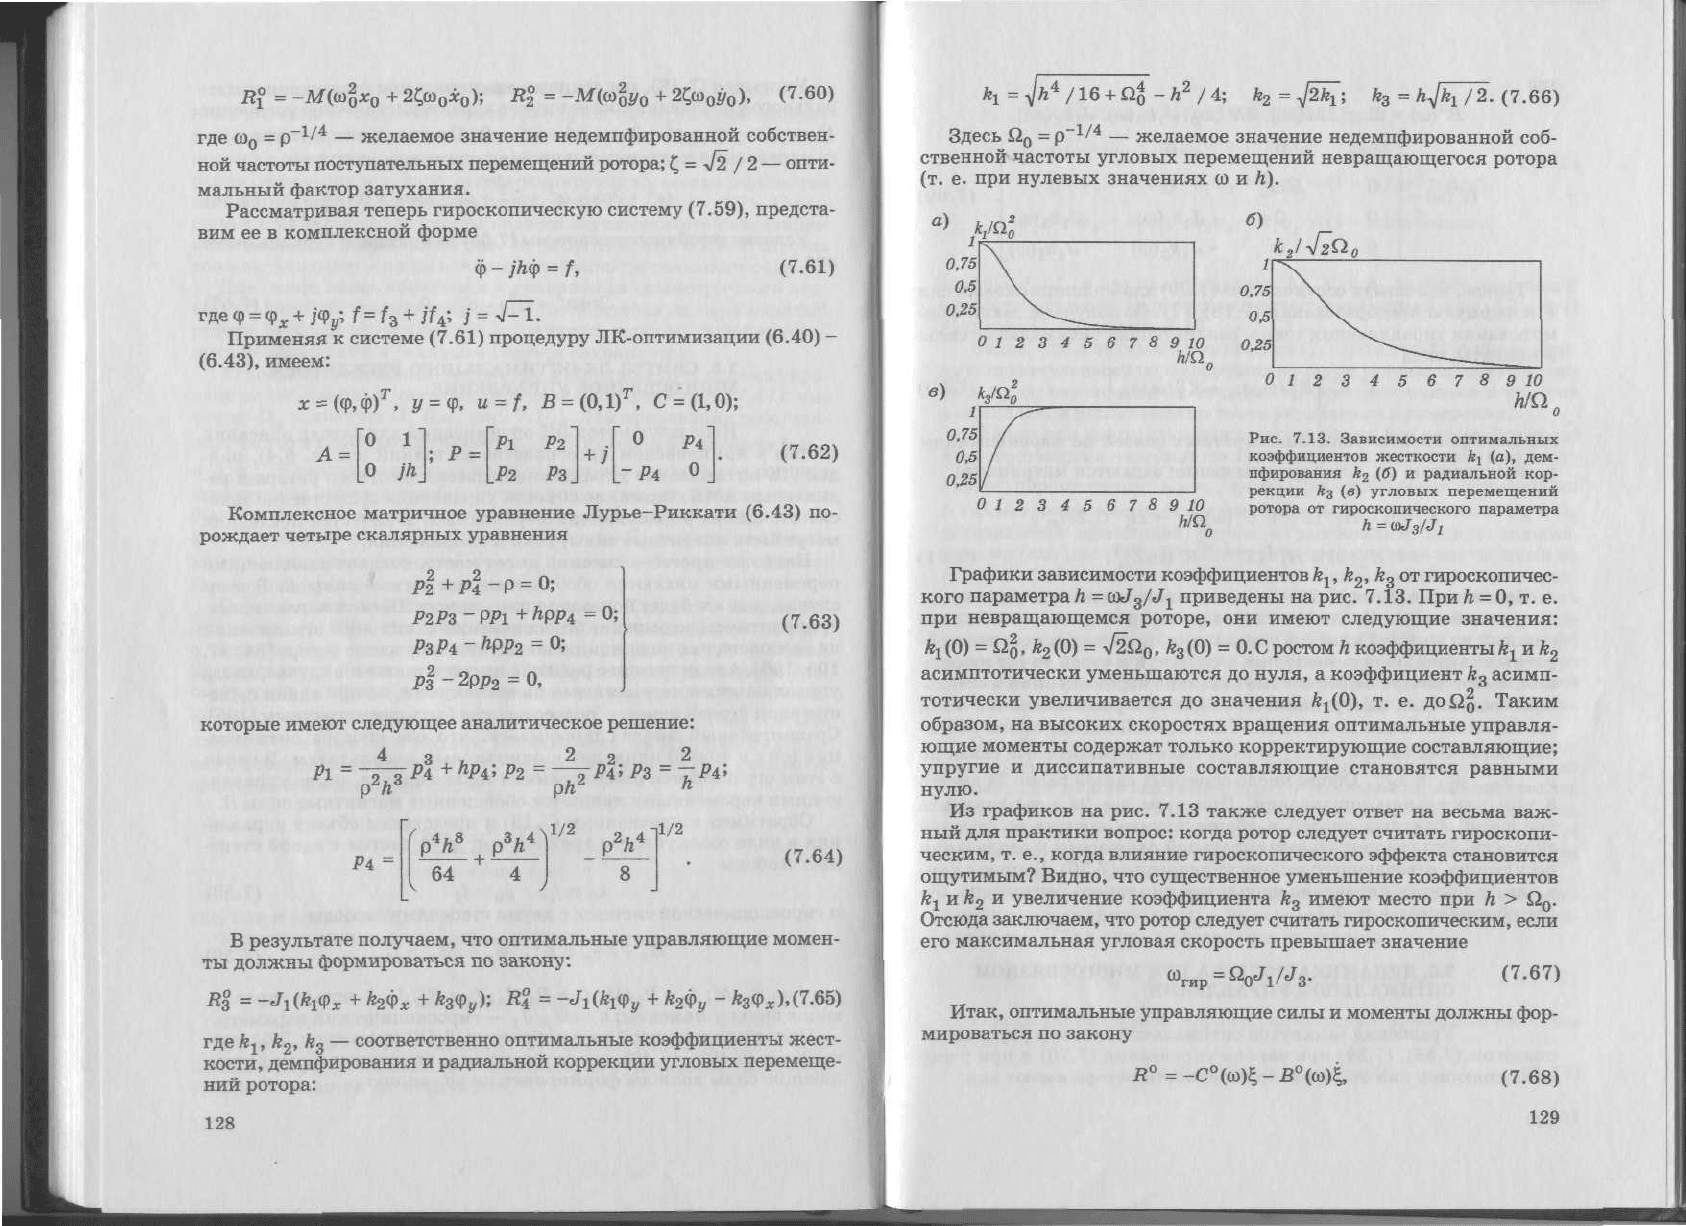 R₁⁰ = –M(ω₀²x₀ + 2ζω₀ẋ₀); R₂⁰ = –M(ω₀²y₀ + 2ζω₀ẏ₀), (7.60)
где ω₀ = ρ^(–1/4) — желаемое значение недемпфированной собствен-
ной частоты поступательных перемещений ротора; ζ = √2 / 2 — опти-
мальный фактор затухания.
Рассматривая теперь гироскопическую систему (7.59), предста-
вим ее в комплексной форме
φ̈ – jhφ̇ = f, (7.61)
где φ = φₓ + jφ_y; f = f₃ + jf₄; j = √–1.
Применяя к системе (7.61) процедуру ЛК-оптимизации (6.40) –
(6.43), имеем:
x = (φ, φ̇)ᵀ, y = φ, u = f, B = (0,1)ᵀ, C = (1, 0);
A = [0 1; 0 jh]; P = [p₁ p₂; p₂ p₃] + j[0 p₄; –p₄ 0]. (7.62)
Комплексное матричное уравнение Лурье–Риккати (6.43) по-
рождает четыре скалярных уравнения
p₂² + p₄² – ρ = 0;
p₂p₃ – ρp₁ + hρp₄ = 0;
p₃p₄ – hρp₂ = 0;
p₃² – 2ρp₂ = 0, (7.63)
которые имеют следующее аналитическое решение:
p₁ = 4/(ρ²h³) p₄³ + hp₄; p₂ = 2/(ρh²) p₄²; p₃ = 2/h p₄;
p₄ = [(ρ⁴h⁸/64 + ρ³h⁴/4)^(1/2) – ρ²h⁴/8]^(1/2). (7.64)
В результате получаем, что оптимальные управляющие момен-
ты должны формироваться по закону:
R₃⁰ = –J₁(k₁φₓ + k₂φ̇ₓ + k₃φ_y); R₄⁰ = –J₁(k₁φ_y + k₂φ̇_y – k₃φₓ), (7.65)
где k₁, k₂, k₃ — соответственно оптимальные коэффициенты жест-
кости, демпфирования и радиальной коррекции угловых перемеще-
ний ротора:
128
k₁ = √(h⁴ / 16 + Ω₀⁴) – h² / 4; k₂ = √(2k₁); k₃ = h√(k₁ / 2). (7.66)
Здесь Ω₀ = ρ^(–1/4) — желаемое значение недемпфированной соб-
ственной частоты угловых перемещений невращающегося ротора
(т. е. при нулевых значениях ω и h).
а) k₁/Ω₀²
1
0,75
0,5
0,25
0 1 2 3 4 5 6 7 8 9 10
h/Ω₀
б) k₂/√2Ω₀
1
0,75
0,5
0,25
0 1 2 3 4 5 6 7 8 9 10
h/Ω₀
в) k₃/Ω₀²
1
0,75
0,5
0,25
0 1 2 3 4 5 6 7 8 9 10
h/Ω₀
Рис. 7.13. Зависимости оптимальных
коэффициентов жесткости k₁ (а), дем-
пфирования k₂ (б) и радиальной кор-
рекции k₃ (в) угловых перемещений
ротора от гироскопического параметра
h = ωJ₃/J₁
Графики зависимости коэффициентов k₁, k₂, k₃ от гироскопичес-
кого параметра h = ωJ₃/J₁ приведены на рис. 7.13. При h = 0, т. е.
при невращающемся роторе, они имеют следующие значения:
k₁(0) = Ω₀², k₂(0) = √2Ω₀, k₃(0) = 0. С ростом h коэффициенты k₁ и k₂
асимптотически уменьшаются до нуля, а коэффициент k₃ асимп-
тотически увеличивается до значения k₁(0), т. е. до Ω₀². Таким
образом, на высоких скоростях вращения оптимальные управля-
ющие моменты содержат только корректирующие составляющие;
упругие и диссипативные составляющие становятся равными
нулю.
Из графиков на рис. 7.13 также следует ответ на весьма важ-
ный для практики вопрос: когда ротор следует считать гироскопи-
ческим, т. е., когда влияние гироскопического эффекта становится
ощутимым? Видно, что существенное уменьшение коэффициентов
k₁ и k₂ и увеличение коэффициента k₃ имеют место при h > Ω₀.
Отсюда заключаем, что ротор следует считать гироскопическим, если
его максимальная угловая скорость превышает значение
ω_гир = Ω₀J₁/J₃. (7.67)
Итак, оптимальные управляющие силы и моменты должны фор-
мироваться по закону
R⁰ = –C⁰(ω)ξ – B⁰(ω)ξ̇, (7.68)
129